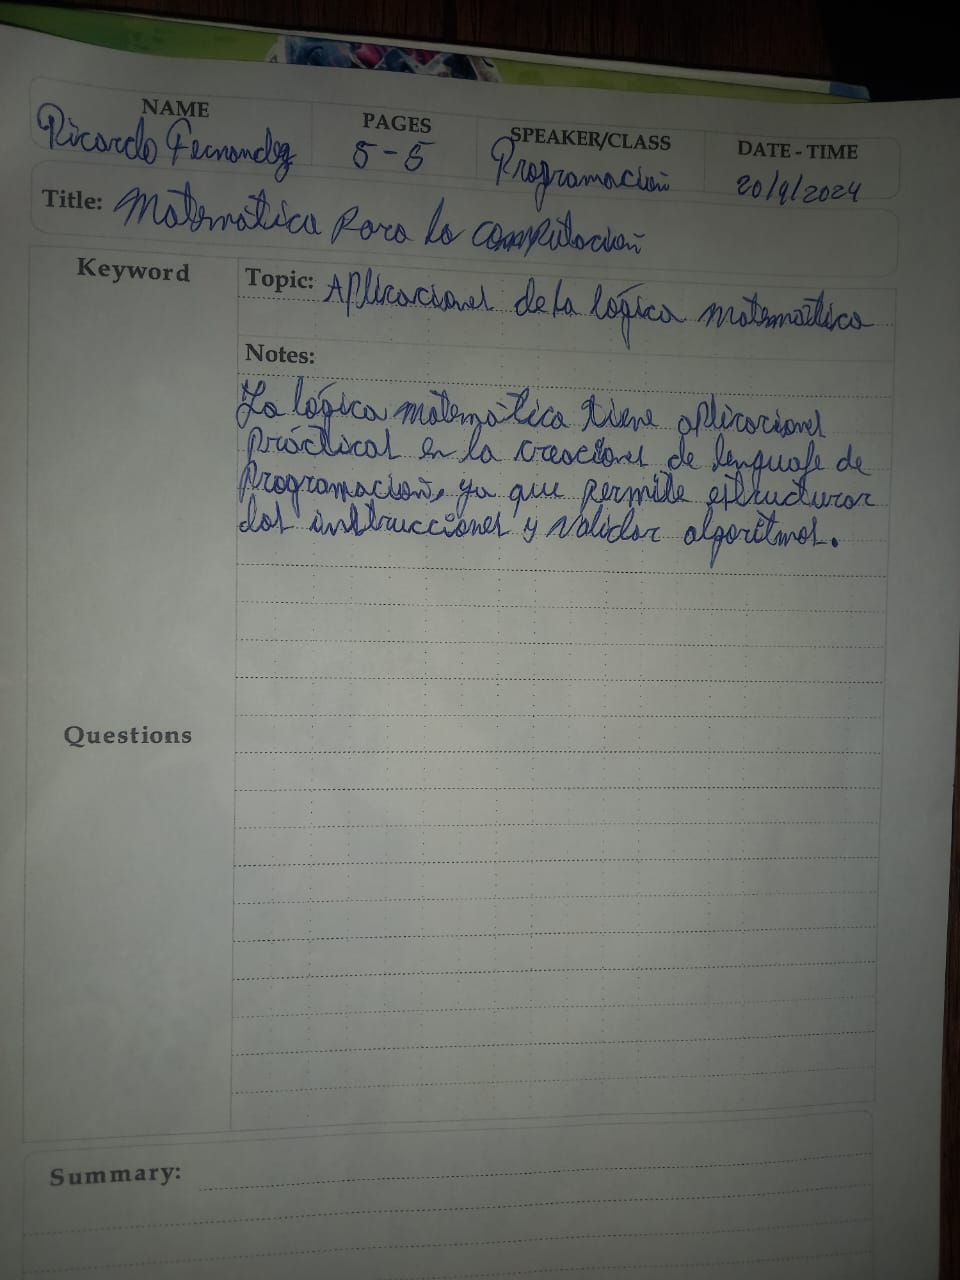 NAME
Ricardo Fernandez
PAGES
5-5
SPEAKER/CLASS
Programación
DATE - TIME
20/9/2024
Title: Matemática para la computación
Keyword
Topic: Aplicaciones de la lógica matemática
Notes:
La lógica matemática tiene aplicaciones
prácticas en la creaciones de lenguaje de
Programación, ya que permite estructurar
las instrucciones y validar algoritmos.
Questions
Summary: